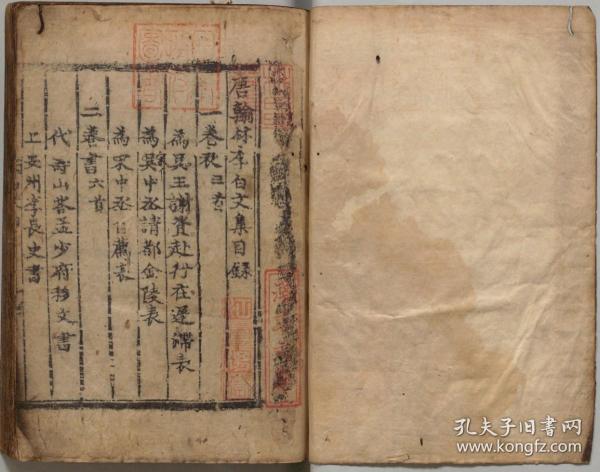 唐翰林李白文集目錄
一卷表三首
為吳王謝責赴行在遲滯表
為宋中丞請都金陵表
為宋中丞自薦表
二卷書六首
代壽山答孟少府移文書
上安州李長史書
孔夫子旧书网
www.kongfz.com